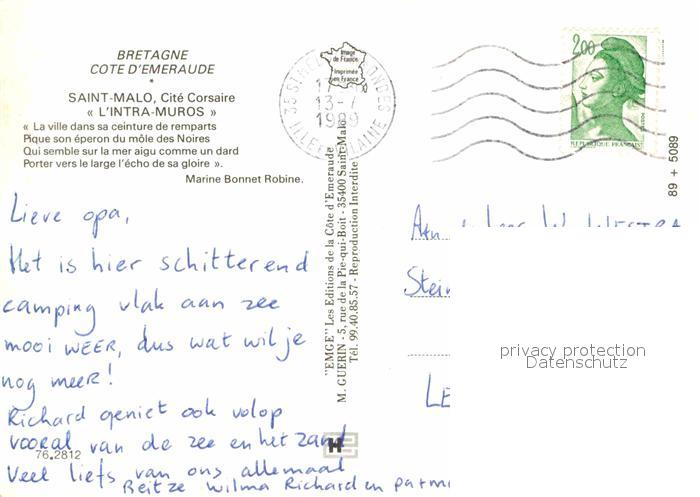 BRETAGNE
COTE D'EMERAUDE
SAINT-MALO, Cité Corsaire
« L'INTRA-MUROS »
« La ville dans sa ceinture de remparts
Pique son éperon du môle des Noires
Qui semble sur la mer aigu comme un dard
Porter vers le large l'écho de sa gloire ».
Marine Bonnet Robine.
Lieve opa,
Het is hier schitterend
camping vlak aan zee
mooi WEER, dus wat wil je
nog meer!
Richard geniet ook volop
vooral van de zee en het zand
Veel liefs van ons allemaal
Reitze Wilma Richard en
76.2812
Image
de France
Imprimée
en France
13-7
1989
"EMGE" Les Editions de la Côte d'Emeraude
M. GUERIN - 5, rue de la Pie-qui-Boit - 35400 Saint-Malo
Tél. 99.40.85.57 - Reproduction Interdite
2,00
REPUBLIQUE FRANÇAISE
89 + 5089
privacy protection
Datenschutz